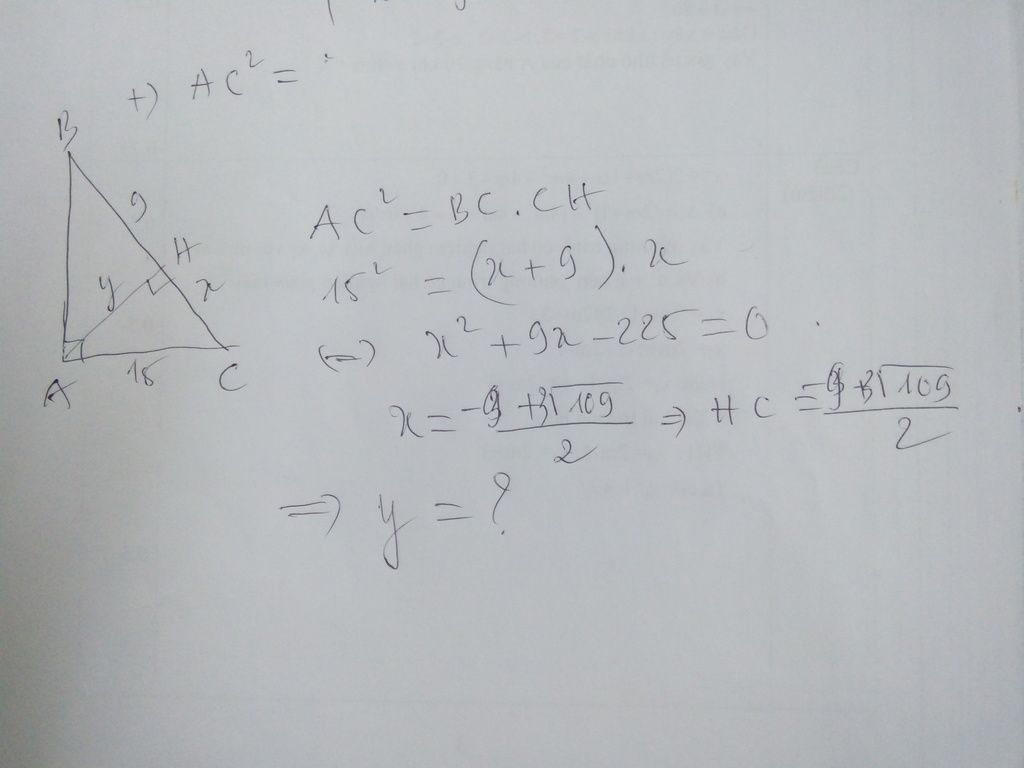 +) AC² =
B
9
H
y
x
A
15
C
AC² = BC . CH
15² = (x + 9) . x
(=) x² + 9x - 225 = 0
x = (-9 + 3√109)/2 => HC = (-9 + 3√109)/2
=> y = ?